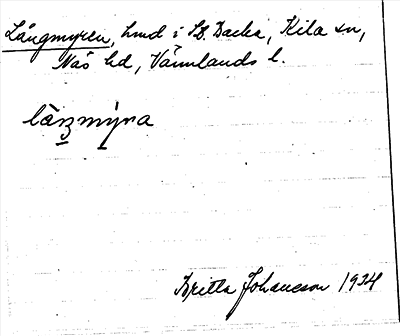 Långmyren, hmd i St. Backa, Kila sn,
Näs hd, Värmlands l.
lȧŋmyra
Britta Johansson 1934